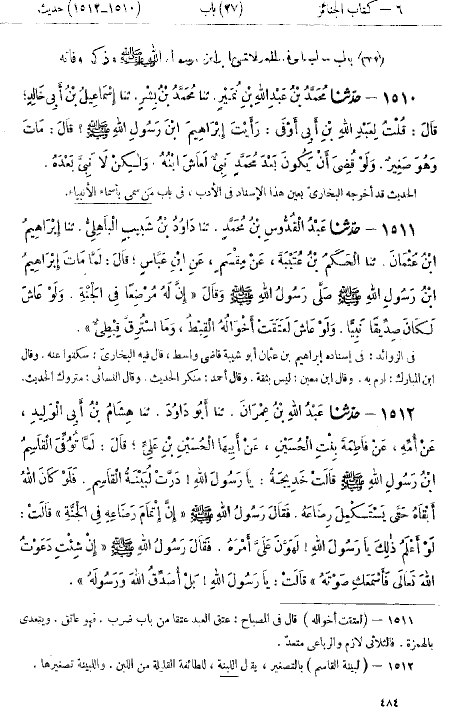 ٦ – كتاب الجنائز (٢٧) باب (١٥١٠–١٥١٢) حديث
١٥١٠ – حَدَّثَنَا مُحَمَّدُ بْنُ عَبْدِ اللهِ بْنِ نُمَيْرٍ . ثنا مُحَمَّدُ بْنُ بِشْرٍ . ثنا إِسْمَاعِيلُ بْنُ أَبِي خَالِدٍ؛
قَالَ : قُلْتُ لِعَبْدِ اللهِ بْنِ أَبِي أَوْفَى : رَأَيْتَ إِبْرَاهِيمَ ابْنَ رَسُولِ اللهِ ﷺ ؟ قَالَ : مَاتَ
وَهُوَ صَغِيرٌ . وَلَوْ قُضِيَ أَنْ يَكُونَ بَعْدَ مُحَمَّدٍ نَبِيٌّ لَعَاشَ ابْنُهُ . وَلَـٰكِنْ لَا نَبِيَّ بَعْدَهُ .
الحديث قد أخرجه البخارىّ بعين هذا الإسناد فى الأدب ، فى باب من سمى بأسماء الأنبياء .
١٥١١ – حَدَّثَنَا عَبْدُ الْقُدُّوسِ بْنُ مُحَمَّدٍ . ثنا دَاوُدُ بْنُ شَبِيبٍ الْبَاهِلِيُّ . ثنا إِبْرَاهِيمُ
ابْنُ عُثْمَانَ . ثنا الْحَكَمُ بْنُ عُتَيْبَةَ ، عَنْ مِقْسَمٍ ، عَنِ ابْنِ عَبَّاسٍ ؛ قَالَ : لَمَّا مَاتَ إِبْرَاهِيمُ
ابْنُ رَسُولِ اللهِ ﷺ صَلَّى رَسُولُ اللهِ ﷺ وَقَالَ « إِنَّ لَهُ مُرْضِعًا فِي الْجَنَّةِ . وَلَوْ عَاشَ
لَكَانَ صِدِّيقًا نَبِيًّا . وَلَوْ عَاشَ لَعَتَقَتْ أَخْوَالُهُ الْقِبْطُ ، وَمَا اسْتُرِقَّ قِبْطِيٌّ » .
فى الزوائد : فى إسناده إبراهيم بن عثمان أبو شيبة قاضى واسط، قال فيه البخارىّ : سكتوا عنه . وقال
ابن المبارك : ارم به . وقال ابن معين : ليس بثقة . وقال أحمد : منكر الحديث . وقال النسائى : متروك الحديث.
١٥١٢ – حَدَّثَنَا عَبْدُ اللهِ بْنُ عِمْرَانَ . ثنا أَبُو دَاوُدَ . ثنا هِشَامُ بْنُ أَبِي الْوَلِيدِ ،
عَنْ أُمِّهِ ، عَنْ فَاطِمَةَ بِنْتِ الْحُسَيْنِ ، عَنْ أَبِيهَا الْحُسَيْنِ بْنِ عَلِيٍّ ؛ قَالَ : لَمَّا تُوُفِّيَ الْقَاسِمُ
ابْنُ رَسُولِ اللهِ ﷺ قَالَتْ خَدِيجَةُ : يَا رَسُولَ اللهِ ! دَرَّتْ لُبَيْنَةُ الْقَاسِمِ . فَلَوْ كَانَ اللهُ
أَبْقَاهُ حَتَّى يَسْتَكْمِلَ رِضَاعَهُ . فَقَالَ رَسُولُ اللهِ ﷺ « إِنَّ إِتْمَامَ رَضَاعِهِ فِي الْجَنَّةِ » قَالَتْ :
لَوْ أَعْلَمُ ذٰلِكَ يَا رَسُولَ اللهِ ! لَهَوَّنَ عَلَيَّ أَمْرَهُ . فَقَالَ رَسُولُ اللهِ ﷺ « إِنْ شِئْتِ دَعَوْتُ
اللهَ تَعَالَى فَأَسْمَعَكِ صَوْتَهُ » قَالَتْ : يَا رَسُولَ اللهِ ! بَلْ أُصَدِّقُ اللهَ وَرَسُولَهُ » .
١٥١١ – ( لعتقت أخواله ) قال فى المصباح : عتق العبد عتقا من باب ضرب . فهو عاتق . ويتعدى
بالهمزة . فالثلاثى لازم والرباعى متعدّ .
١٥١٢ – ( لبينة القاسم ) بالتصغير ، يقال اللبنة ، للطائفة القليلة من اللبن . واللبينة تصغيرها .
٤٨٤